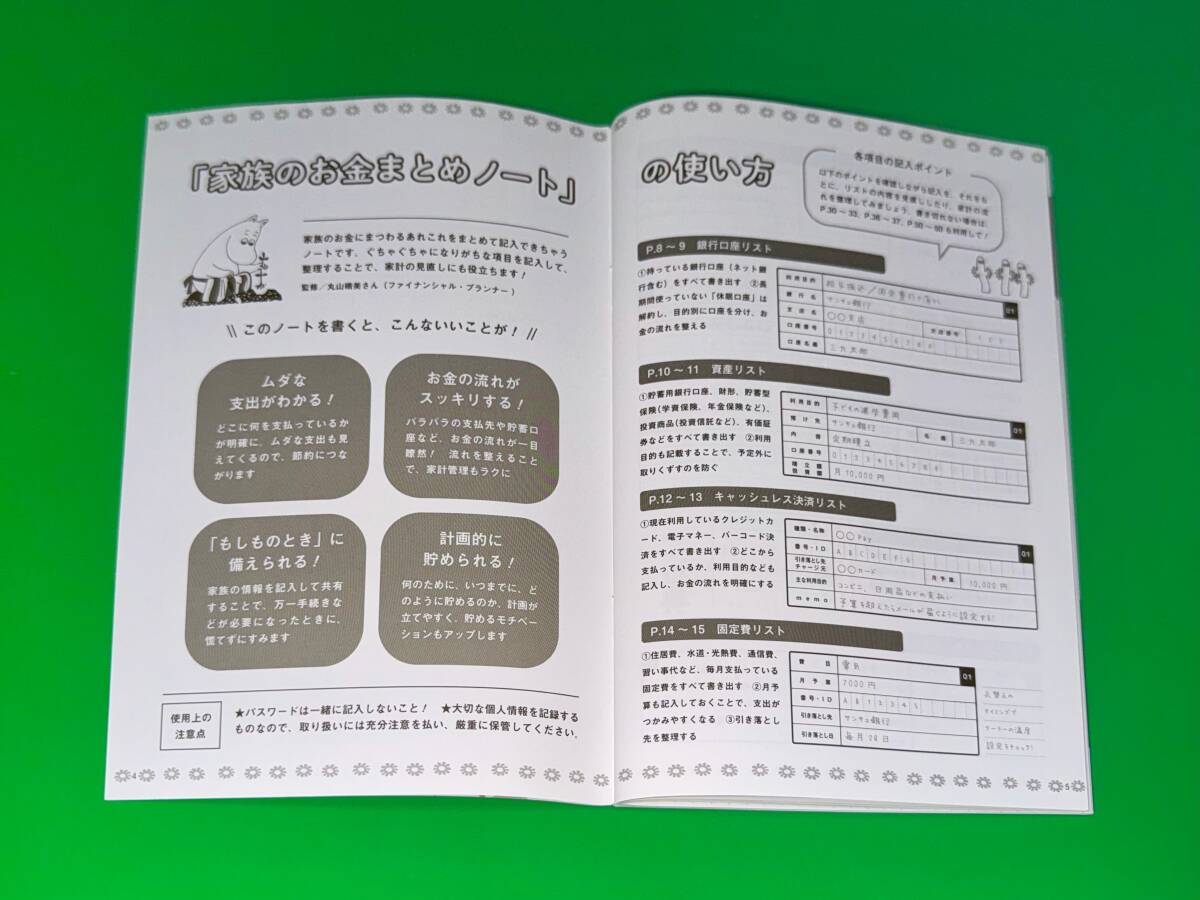 「家族のお金まとめノート」
家族のお金にまつわるあれこれをまとめて記入できちゃう
ノートです。ぐちゃぐちゃになりがちな項目を記入して、
整理することで、家計の見直しにも役立ちます！
監修／丸山晴美さん（ファイナンシャル・プランナー）
\\ このノートを書くと、こんないいことが！ //
ムダな
支出がわかる！
どこに何を支払っているか
が明確に。ムダな支出も見
えてくるので、節約につな
がります
お金の流れが
スッキリする！
バラバラの支払先や貯蓄口
座など、お金の流れが一目
瞭然！ 流れを整えること
で、家計管理もラクに
「もしものとき」に
備えられる！
家族の情報を記入して共有
することで、万一手続きな
どが必要になったときに、
慌てずにすみます
計画的に
貯められる！
何のために、いつまでに、ど
のように貯めるのか、計画が
立てやすく、貯めるモチベー
ションもアップします
使用上の
注意点
★パスワードは一緒に記入しないこと！ ★大切な個人情報を記録する
ものなので、取り扱いには充分注意を払い、厳重に保管してください。
4
の使い方
各項目の記入ポイント
以下のポイントを確認しながら記入を。それをも
とに、リストの内容を見直したり、家計の流
れを整理してみましょう。書き切れない場合は、
P.30～33、P.36～37、P.50～60も利用して！
P.8～9 銀行口座リスト
①持っている銀行口座（ネット銀
行含む）をすべて書き出す ②長
期間使っていない「休眠口座」は
解約し、目的別に口座を分け、お
金の流れを整える
01
利用目的
銀行名 サンキュ銀行
支店名 〇〇支店
口座番号 0 1 2 3 4 5 6 7 8 9 支店番号
口座名義 三九太郎
P.10～11 資産リスト
①貯蓄用銀行口座、財形、貯蓄型
保険（学資保険、年金保険など）、
投資商品（投資信託など）、有価証
券などをすべて書き出す ②利用
目的も記載することで、予定外に
取りくずすのを防ぐ
01
利用目的 子どもの進学費用
預け先 サンキュ銀行 名義 三九太郎
内容 定期積立
口座番号 0 1 2 3 4 5 6 7 8 9
積立額
投資額 月10,000円
P.12～13 キャッシュレス決済リスト
①現在利用しているクレジットカ
ード、電子マネー、バーコード決
済をすべて書き出す ②どこから
支払っているか、利用目的なども
記入し、お金の流れを明確にする
01
種類・名称 〇〇Pay
番号・ID A B C D E F G
引き落とし先
チャージ元 〇〇カード 月予算 10,000円
主な利用目的 コンビニ、日用品などの支払い
memo 予算を超えたらメールが届くように設定する！
P.14～15 固定費リスト
①住居費、水道・光熱費、通信費、
習い事代など、毎月支払っている
固定費をすべて書き出す ②月予
算も記入しておくことで、支出が
つかみやすくなる ③引き落とし
先を整理する
01
費目 電気
月予算 7000円
番号・ID A B 1 2 3 4 5
引き落とし先 サンキュ銀行
引き落とし日 毎月28日
衣替えの
タイミングで
クーラーの温度
設定をチェック！
5